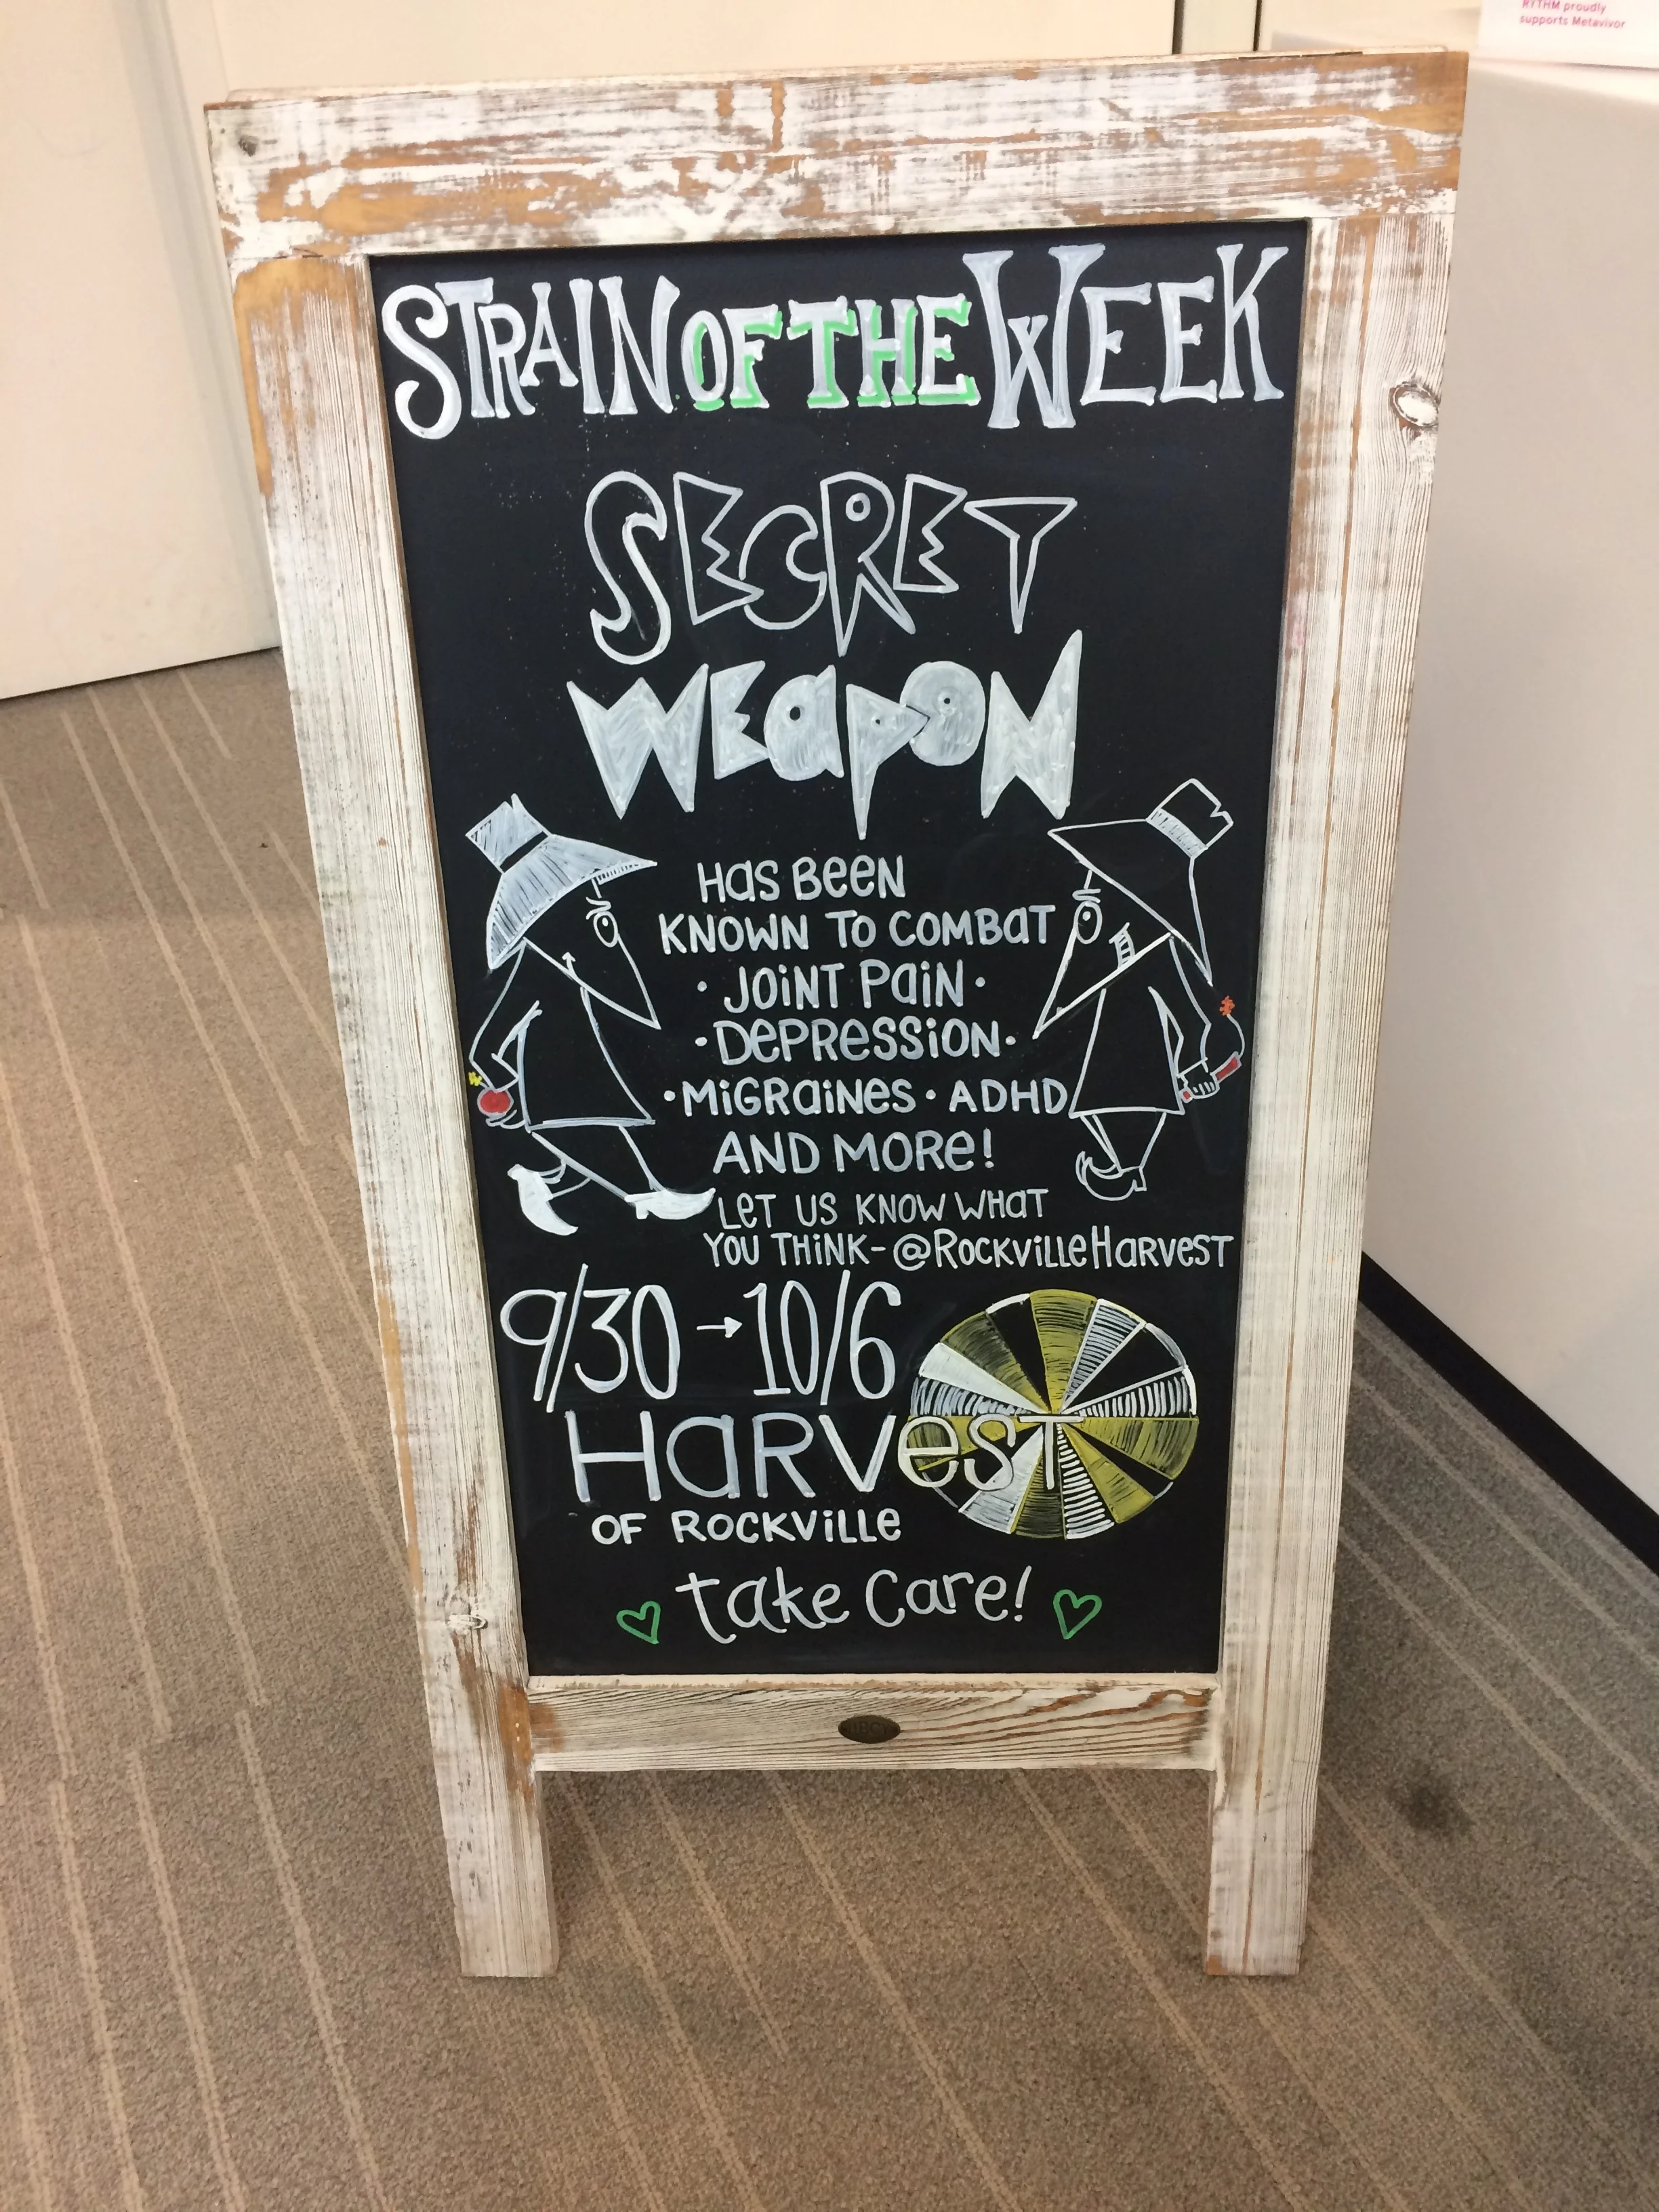 RYTHM proudly
supports Metavivor
STRAIN OF THE WEEK
SECRET
WEAPON
HAS BEEN
KNOWN TO COMBAT
· JOINT PAIN ·
· DEPRESSION ·
· MIGRAINES · ADHD
AND MORE!
LET US KNOW WHAT
YOU THINK - @ROCKVILLEHARVEST
9/30 → 10/6
HARVEST
OF ROCKVILLE
take care!